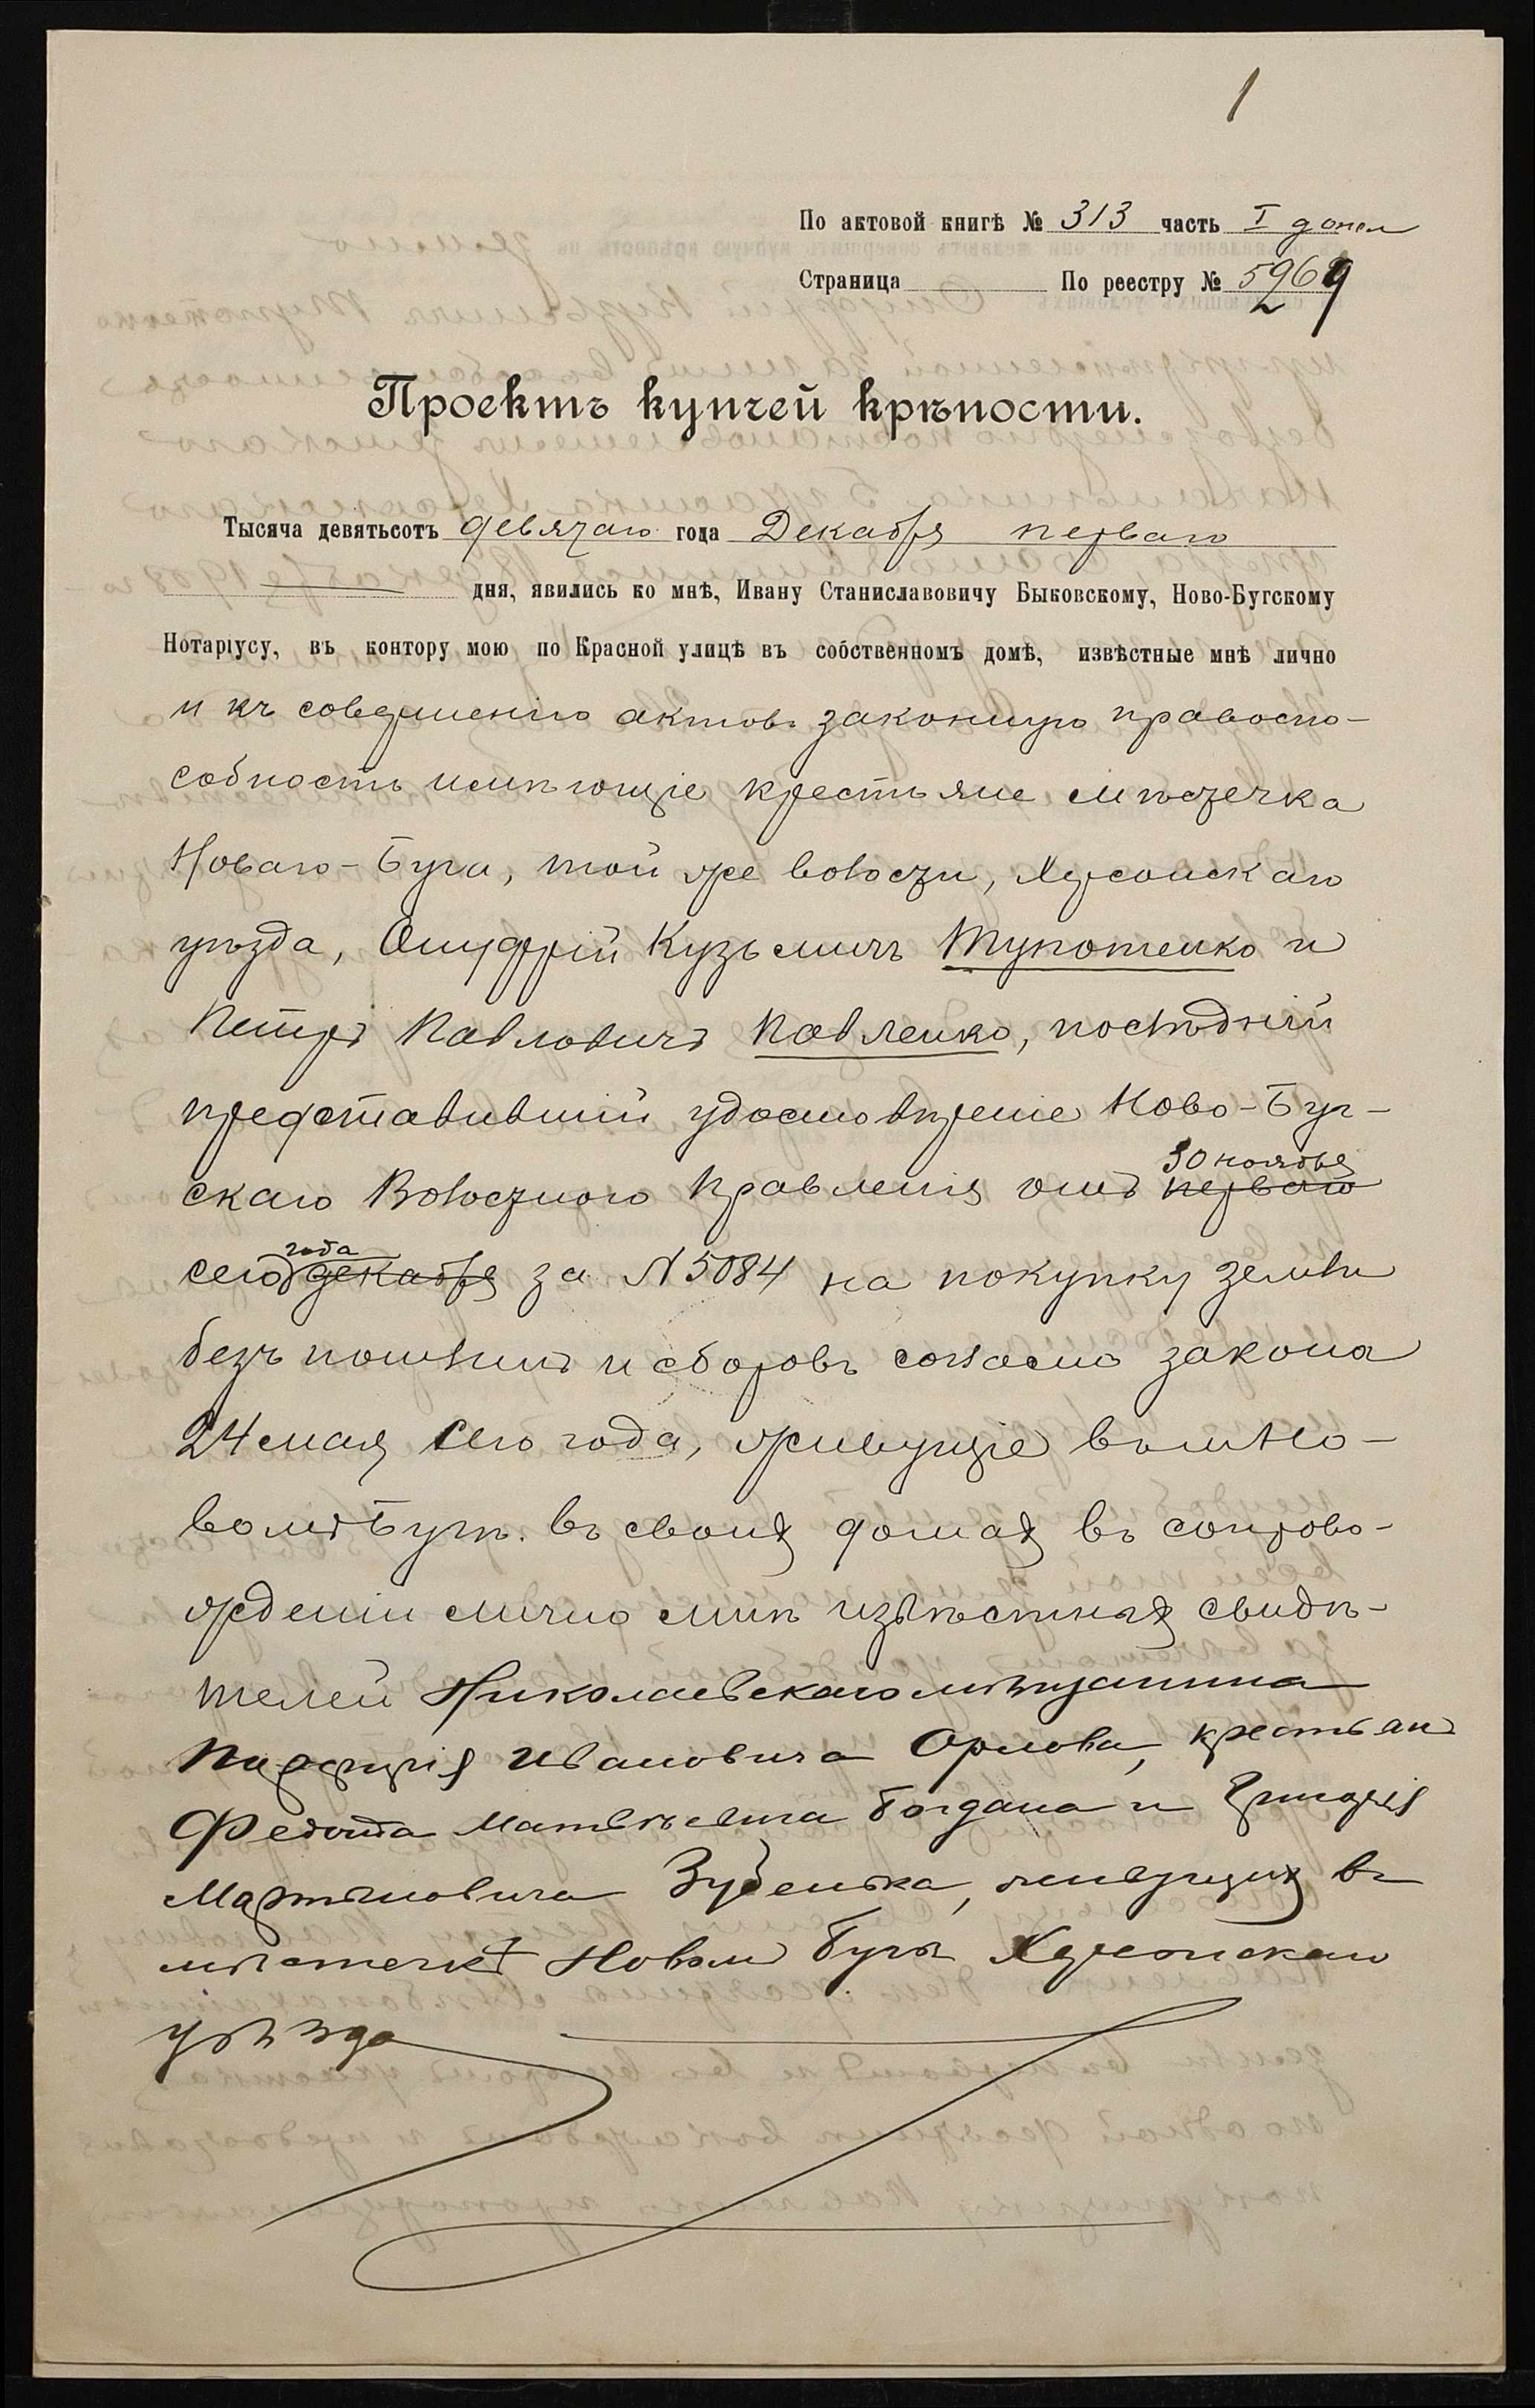 1
По актовой книгѣ № 313 часть I допол
Страница По реестру № 5969
Проектъ купчей крѣпости.
Тысяча девятьсотъ девятаго года Декабря перваго
дня, явились ко мнѣ, Ивану Станиславовичу Быковскому, Ново-Бугскому
Нотаріусу, въ контору мою по Красной улицѣ въ собственномъ домѣ, извѣстные мнѣ лично
и къ совершенію актовъ законную правоспо-
собность имѣющіе крестьяне мѣстечка
Новаго-Буга, той же волости, Херсонскаго
уѣзда, Онуфрій Кузьмичъ Тупотенко и
Петръ Павловичъ Павленко, послѣдній
представившій удостовѣреніе Ново-Буг-
скаго Волостного Правленія отъ 30 ноября перваго
сего года декабря за № 5084 на покупку земли
безъ пошлинъ и сборовъ согласно закона
24 мая сего года, живущіе въ м Но-
вомъ Бугѣ. въ своихъ домахъ въ сопрово-
жденіи лично мнѣ извѣстныхъ свидѣ-
телей Николаевскаго мѣщанина
Ивановича Орлова, крестьянъ
Федота Матвѣевича Богдана и Григорія
Мартыновича Зубенька, живущихъ въ
мѣстечкѣ Новомъ Бугѣ Херсонскаго
уѣзда